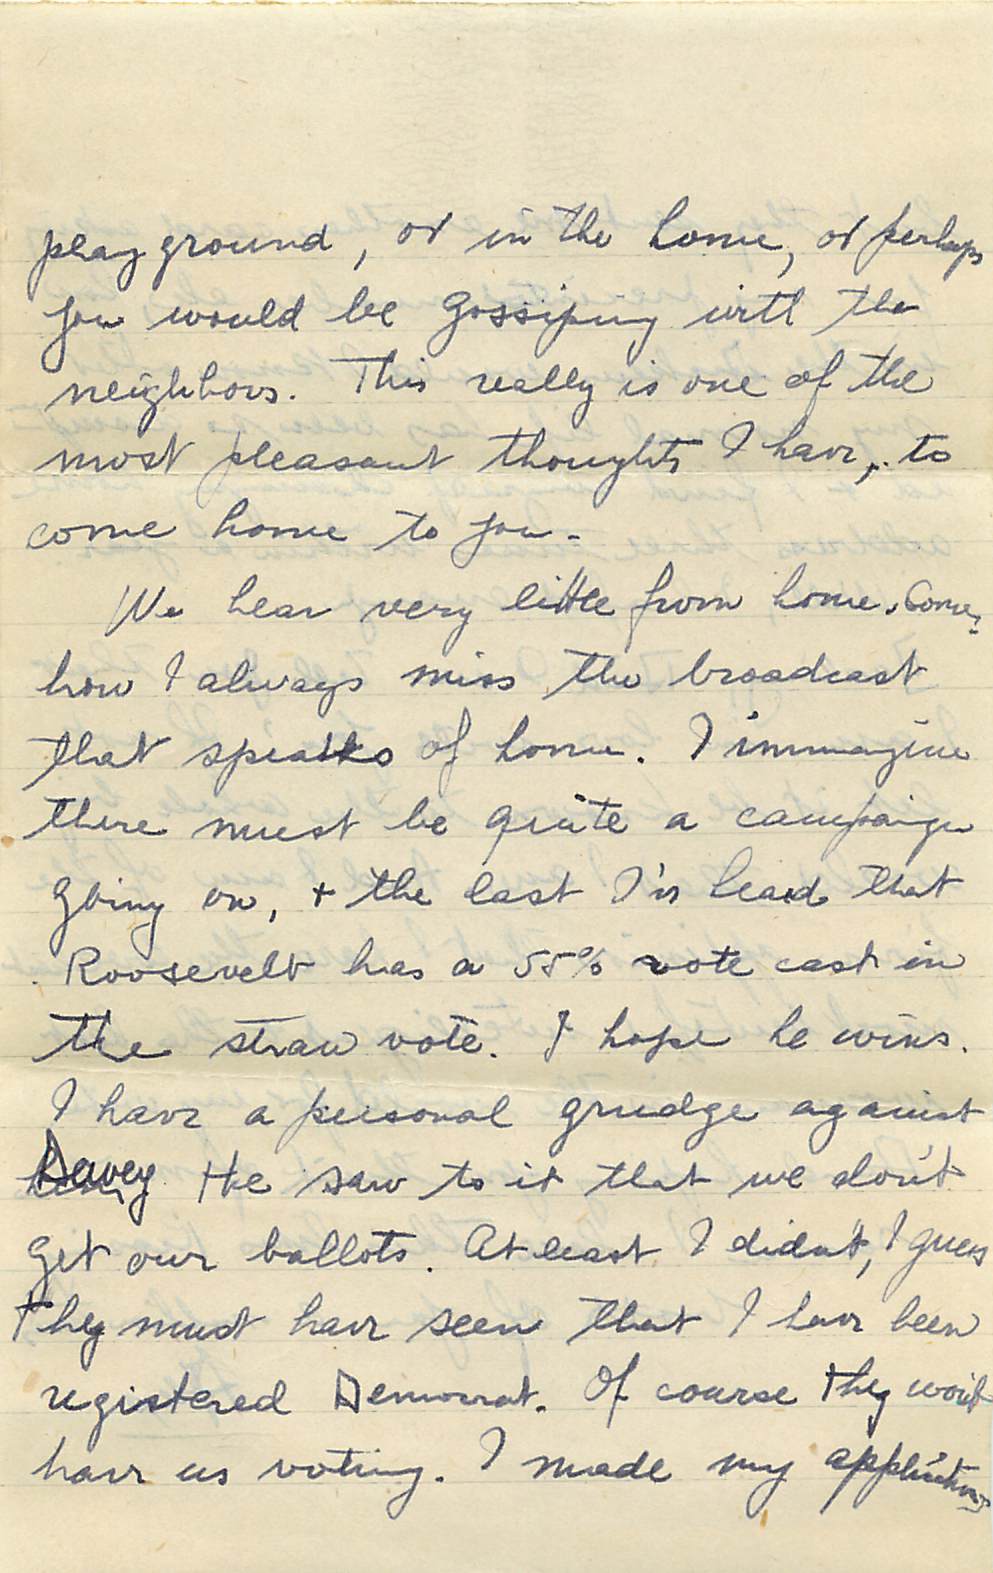 playground, or in the home, or perhaps
you would be gossiping with the
neighbors. This really is one of the
most pleasant thoughts I have, to
come home to you.
We hear very little from home. Some-
how I always miss the broadcast
that speaks of home. I immagine
there must be quite a campaign
going on, + the last I've heard that
Roosevelt has a 55% vote cast in
the straw vote. I hope he wins.
I have a personal grudge against
Dewey He saw to it that we don't
get our ballots. At least I didn't, I guess
they must have seen that I have been
registered Democrat. Of course they won't
have us voting. I made my application